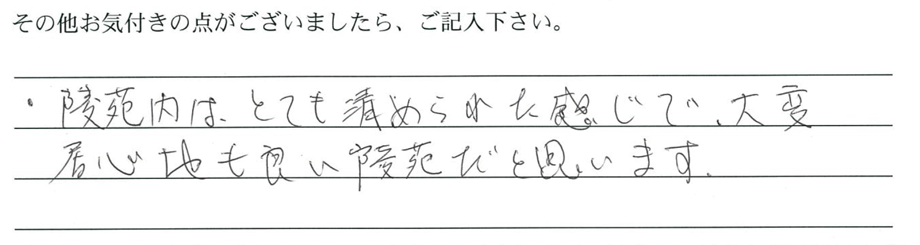 その他お気付きの点がございましたら、ご記入下さい。
・陵苑内は、とても清められた感じで、大変
居心地も良い陵苑だと思います。